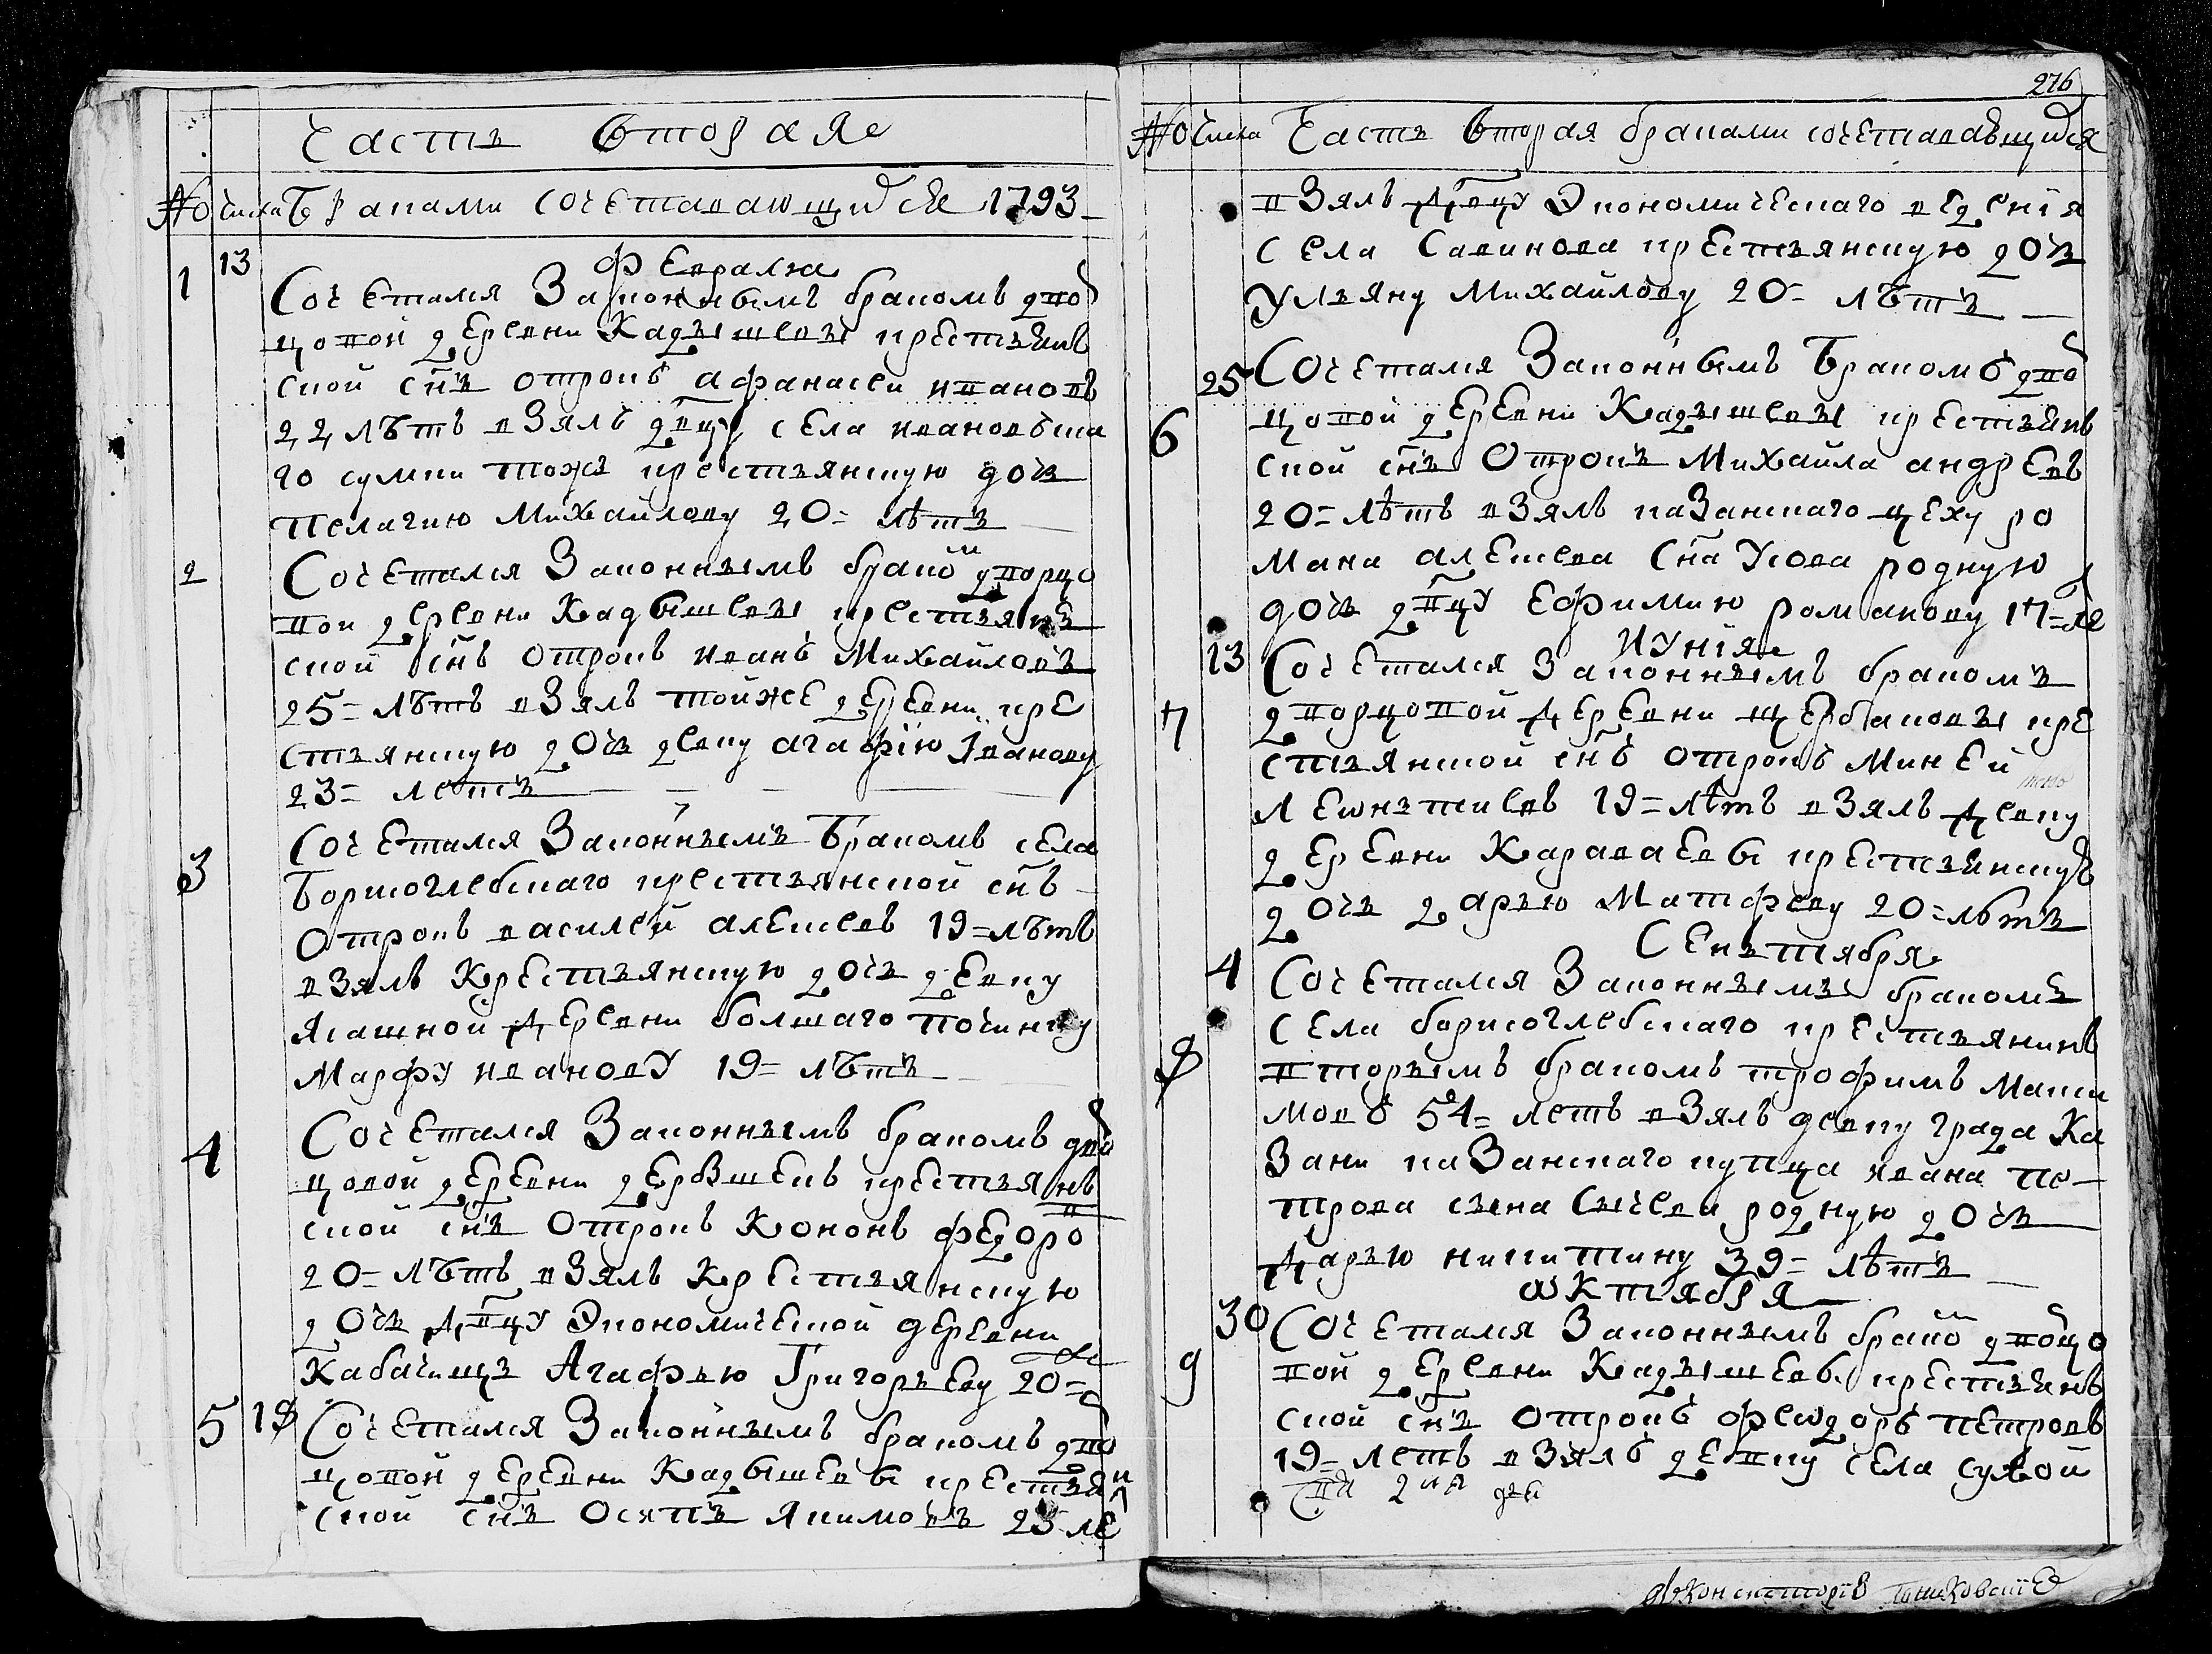 Часть вторая
№ числа Браками сочетавающиися 1793
Февраля
1 13 Сочетался Законнымъ бракомъ дво
цовой деревни Кадышевы крестьянъ
ской снъ отрокъ афанасеи ивановъ
22 лѣтъ взялъ двцу села ивановъска
го сумки тожъ крестьянскую дочь
Пелагию Михайлову 20= лѣтъ
2 Сочетался Законнымъ брако дворцо
вои деревни Кадышевы крестьянъ
ской снъ отрокъ иванъ Михайловъ
25= лѣтъ взялъ тойже деревни кре
стьянскую дочь девку агафію Іванову
23= летъ
Сочетался Законнымъ Бракомъ села
3 Борисоглебскаго крестьянской снъ
Отрокъ василей алексеевъ 19= лѣтъ
взялъ Крестьянскую дочь девку
ясашной деревни болшаго починку
Марфу иванову 19= лѣтъ
4 Сочетался Законнымъ бракомъ дво
цовой деревни дербышекъ крестьянъ
ской снъ Отрокъ Кононъ федоро
20= лѣтъ взялъ Крестьянскую
дочь двцу Экономической деревни
Кабачищъ Агафью Григорьеву 20=
5 18 Сочетался Законнымъ бракомъ дво
цовой деревни Кадышевы крестьян
ской снъ Осипъ якимовъ 25 ле
276
№ числа Часть вторая браками сочетавающиися
взялъ двцу Экономическаго ведения
села Савинова крестьянскую дочь
Ульяну Михайлову 20= лѣтъ
25 Сочетался Законнымъ Бракомъ дво
6 цовой деревни Кадышевы крестьянъ
ской снъ Отрокъ Михайла андреевъ
20= лѣтъ взялъ казанскаго цеху ро
мана алексеева сна Усова родную
дочь двцу Ефимию романову 17= ле
Иунія
13 Сочетался Законнымъ бракомъ
7 дворцовой деревни щербаковы кре
стьянской снъ отрокъ Миней
Леѡнтьевъ 19= лѣтъ взялъ девку
деревни Караваевы крестьянскую
дочь дарью Матфееву 20= лѣтъ
Сентября
4 Сочетался Законнымъ бракомъ
села борисоглебскаго крестьянинъ
8 вторымъ бракомъ трофимъ Макси
мовъ 54= летъ взялъ девку града Ка
Зани каЗанскаго купца ивана пе
трова сына родную дочь
дарью никитину 39= лѣтъ
ѡктября
30 Сочетался Законнымъ брако двоцо
9 вой деревни Кадышевы крестьянъ
ской снъ отрокъ феѡдоръ петровъ
19= летъ взялъ девку села сухой